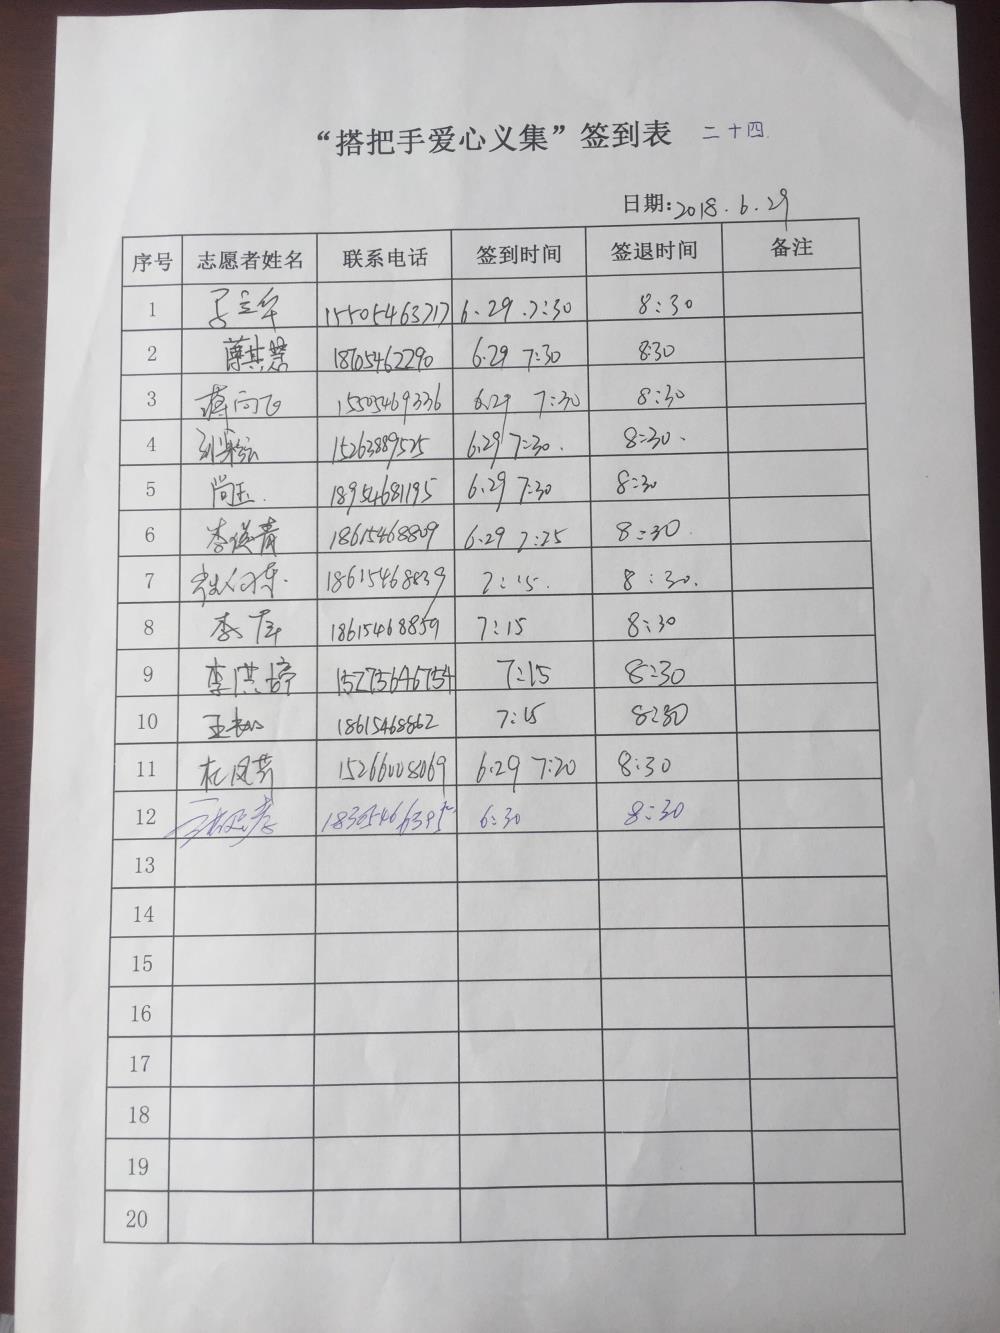 “搭把手爱心义集”签到表 二十四
日期:2018.6.29
序号 志愿者姓名 联系电话 签到时间 签退时间 备注
1 15505463717 6.29.7:30 8:30
2 18705462290 6.29 7:30 8:30
3 蒋向飞 15505469336 6.29 7:30 8:30
4 15263889525 6.29 7:30. 8:30.
5 尚玉. 18954681195 6.29 7:30 8:30
6 李俊青 18615468809 6.29 7:25 8:30.
7 18615468839 7:15. 8:30.
8 李广 18615468859 7:15 8:30
9 李洪婷 15275646754 7:15 8:30
10 18615468862 7:15 8:30
11 杜凤芹 15266008069 6:29 7:20 8:30
12 6:30 8:30
13
14
15
16
17
18
19
20